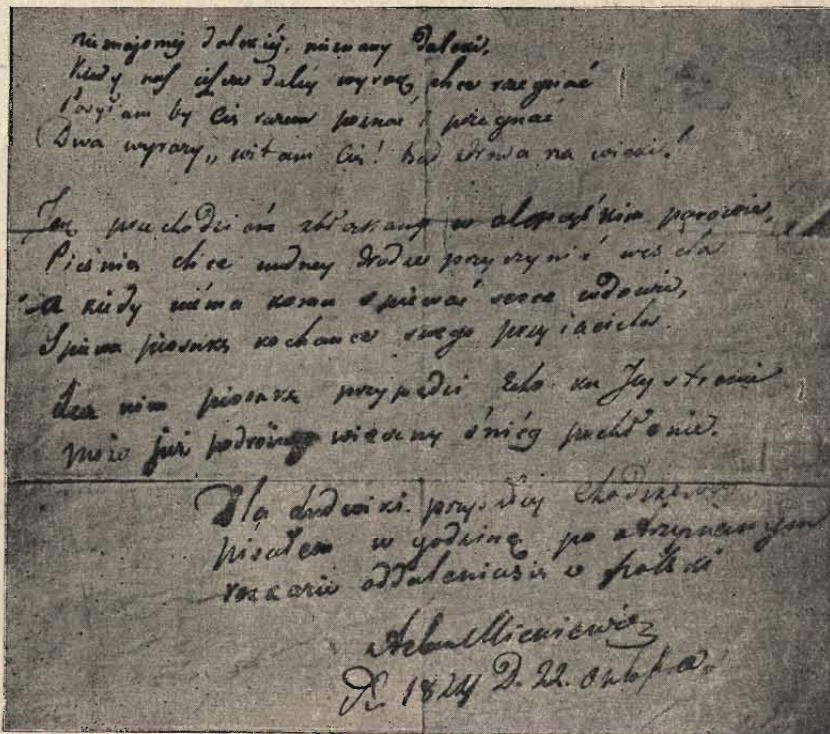 nieznajomej dalekiéj, nieznany daleki,
Kiedy nas dalej wyrok chce rozegnać
Posyłam by Cię razem poznać i pożegnać
Dwa wyrazy „witam Cię! bąć zdrowa na wieki!

Jak przechodzień zbłąkany w alpeyskim parowie,
Pieśnią chce nudney drodze przyczynić wesela
A kiedy niéma komu spiewać serce wdowie,
Spiewa piosnkę kochance swego przyiaciela.

Lecz nim piosnkę przypędzi Echo ku Jey stronie
może już podróżnego wieczny śniég pochłonie.

Dla Ludwiki
pisałem w godzinę po otrzymanym
rozkazie oddaleniasię z Polski

Adam Mickiewicz
R. 1824 D. 22. Oktobra.